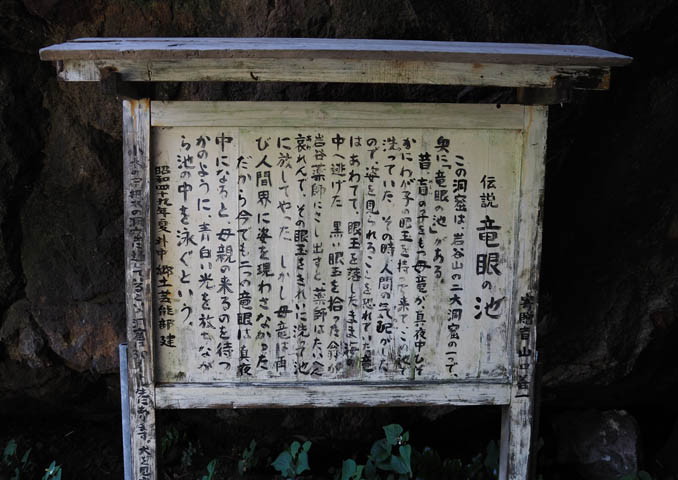 伝説 竜眼の池
この洞窟は、岩谷山の二大洞窟の一つで、
奥に「竜眼の池」がある。
昔、盲の子をもつ母竜が、真夜中ひそ
かにわが子の眼玉を持って来てここで
洗っていた。その時、人間の気配がした
ので、姿を見られることを恐れていた竜
はあわてて、眼玉を落したまま海
中へ逃げた。黒い眼玉を拾った翁が
岩谷薬師にさし出すと薬師はたいへん
哀れんで、その眼玉をきれいに洗って池
に放してやった。しかし母竜は再
び人間界に姿を現わさなかった。
だから今でも二つの竜眼は真夜
中になると、母親の来るのを待つ
かのように、青白い光を放ちなが
ら池の中を泳ぐという。
昭和四十九年夏 外中 郷土芸能部 建